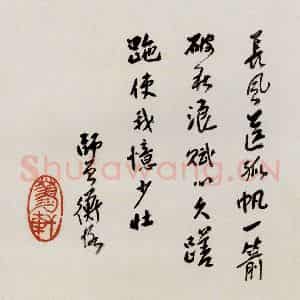 長風送孤帆一箭
破秋浪賦心久蹉
跎使我憶少壯
師曾衡恪
Shufawang.CN